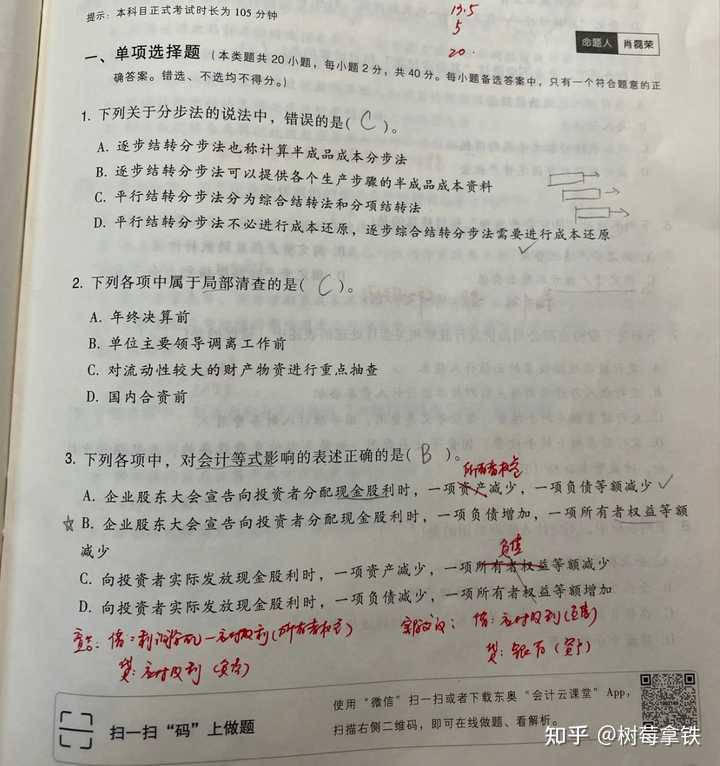 提示：本科目正式考试时长为 105 分钟
19.5
5
20.
命题人 肖磊荣
一、单项选择题（本类题共 20 小题，每小题 2 分，共 40 分。每小题备选答案中，只有一个符合题意的正
确答案。错选、不选均不得分。）
1. 下列关于分步法的说法中，错误的是( C )。
A. 逐步结转分步法也称计算半成品成本分步法
B. 逐步结转分步法可以提供各个生产步骤的半成品成本资料
C. 平行结转分步法分为综合结转法和分项结转法
D. 平行结转分步法不必进行成本还原，逐步综合结转分步法需要进行成本还原
2. 下列各项中属于局部清查的是( C )。
A. 年终决算前
B. 单位主要领导调离工作前
C. 对流动性较大的财产物资进行重点抽查
D. 国内合资前
3. 下列各项中，对会计等式影响的表述正确的是( B )。
所有者权益
A. 企业股东大会宣告向投资者分配现金股利时，一项资产减少，一项负债等额减少
B. 企业股东大会宣告向投资者分配现金股利时，一项负债增加，一项所有者权益等额
减少
负债
C. 向投资者实际发放现金股利时，一项资产减少，一项所有者权益等额减少
D. 向投资者实际发放现金股利时，一项负债减少，一项所有者权益等额增加
宣告：借：利润分配—应付股利(所有者权益)
贷：应付股利（负债）
借：应付股利(负债)
贷：银行（资产）
使用“微信”扫一扫或者下载东奥“会计云课堂”App，
扫一扫“码”上做题
扫描右侧二维码，即可在线做题、看解析。
知乎 @树莓拿铁